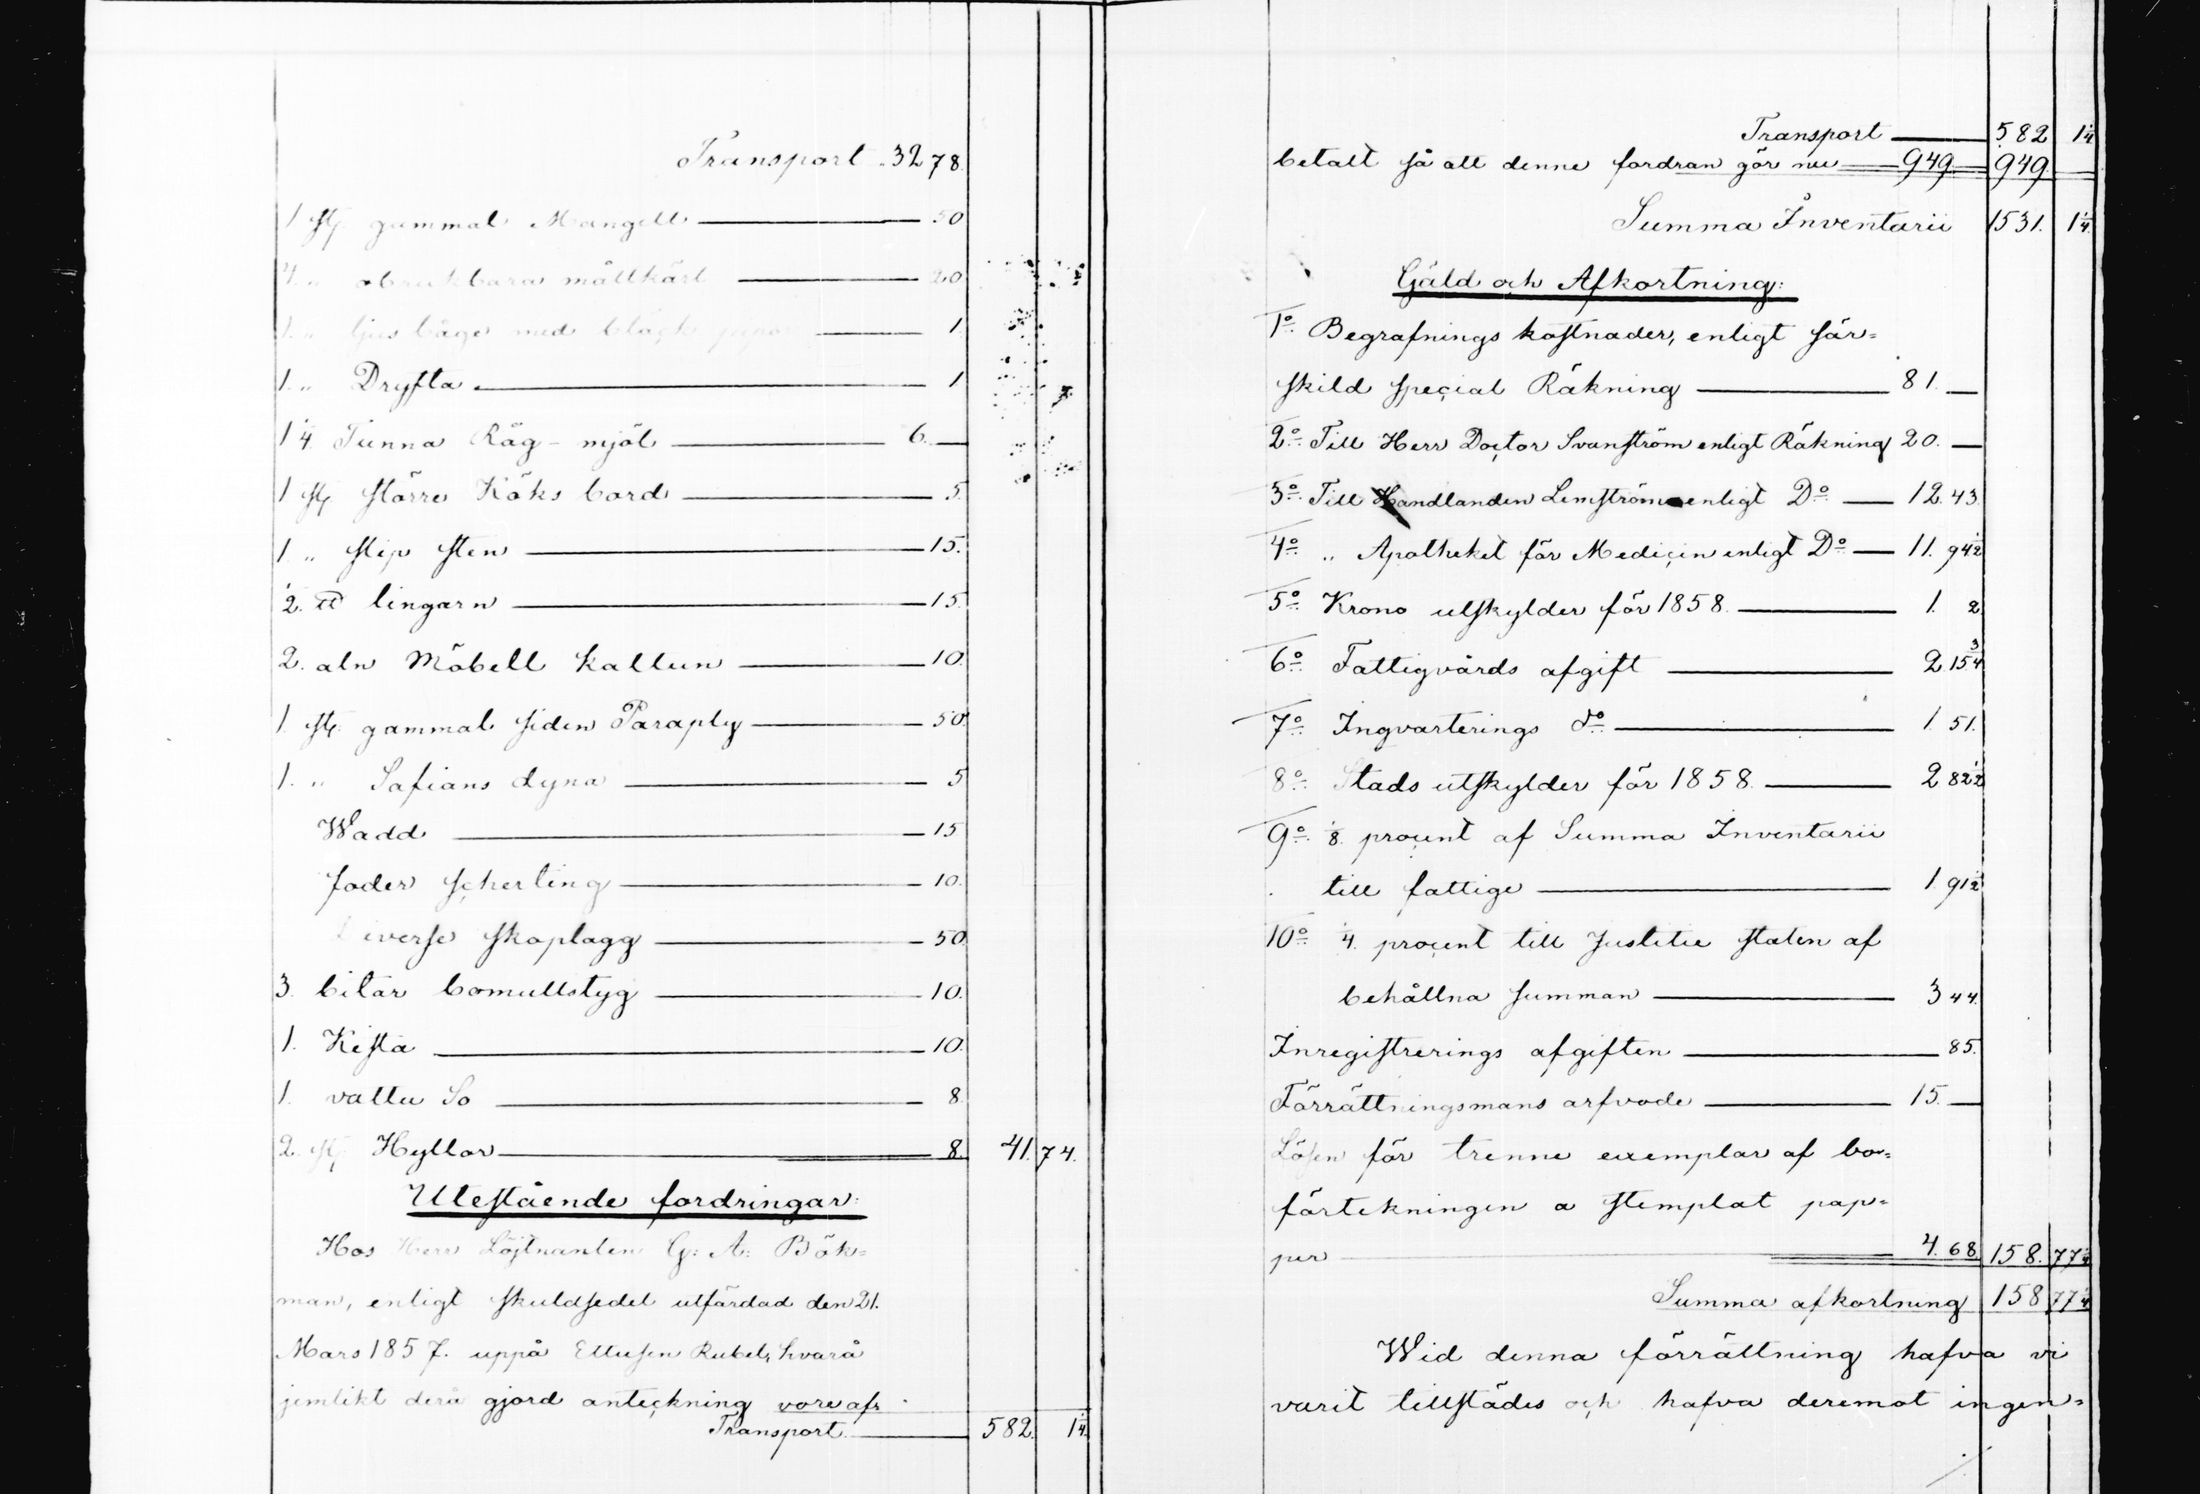 Transport 32 78.
1 st. gammal Mangell 50
4. " obrukbara måttkärl 20
1. " ljus båge med bläck 1
1. " Dryfta 1
1/4 Tunna Råg-mjöl 6.
1 st större Köks bord 5.
1 " slip sten 15.
2. ℔ lingarn 15
2. aln Möbell kattun 10.
1. st. gammal siden Paraply 50.
1. " Safians dyna 5
Wadd 15
foder scherting 10.
diverse skoplagg 50
3. bitar bomullstyg 10.
1. Kista 10.
1. vattu So 8.
2 st. Hyllor 8. 41. 74.
Utestående fordringar:
Hos Herr Löjtnanten G: A: Bök=
man, enligt skuldsedel utfärdad den 21.
Mars 1857. uppå Ettusen Rubel, hvarå
jemlikt derå gjord anteckning vore af:
Transport. 582. 1/4.
Transport 582 1/4
betalt så att denne fordran gör nu 949. 949.
Summa Inventarii 1531. 1/4.
Gäld och Afkortning:
1o. Begrafnings kostnader, enligt sär=
skild special Räkning 81.
2o. Till Herr Doctor Svanström enligt Räkning 20.
3o. Till Handlanden Lemström enligt Do. 12. 43.
4o. " Apotheket för Medicin enligt Do 11. 94 1/2
5o. Krono utskylder för 1858. 1. 2
6o. Fattigvårds afgift 2 15 3/4
7o. Inqvarterings do 1. 51.
8o. Stads utskylder för 1858. 2 82 1/2
9o. 1/8. procent af Summa Inventarii
till fattige 1. 91 1/2
10o. 1/4. procent till Justitie staten af
behållna summan 3 44.
Inregistrerings afgiften 85.
Förrättningsmans arfvode 15.
Lösen för trenne exemplar af bo=
förtekningen a stemplat pap=
per 4. 68. 158. 77 1/4
Summa afkortning 158 77 1/4
Wid denna förrättning hafva vi
varit tillstädes och hafva deremot ingen=